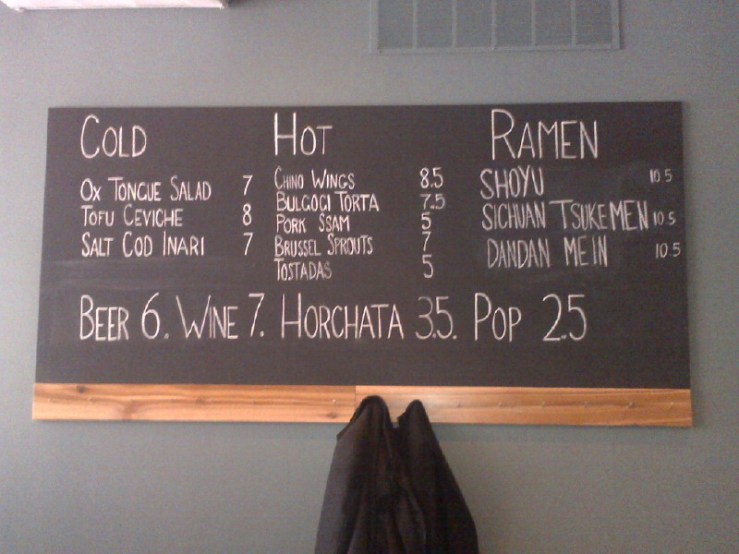 COLD
OX TONGUE SALAD 7
TOFU CEVICHE 8
SALT COD INARI 7
HOT
CHINO WINGS 8.5
BULGOGI TORTA 7.5
PORK SSAM 5
BRUSSEL SPROUTS 7
TOSTADAS 5
RAMEN
SHOYU 10.5
SICHUAN TSUKEMEN 10.5
DANDAN MEIN 10.5
BEER 6. WINE 7. HORCHATA 3.5. POP 2.5